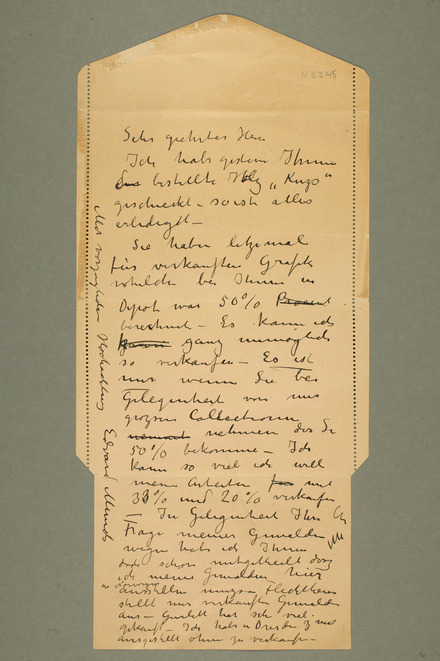 N 3345
Sehr geehrter Herr
Ich habe gestern Ihnen
bestellte Holz „Kuss"
geschickt – so ist alles
erledigt –
Sie haben letzemal
für verkauften Grafik
welchen bei Ihnen in
Depot war 50% Procent
berechnet – Es kann ich
kann ganz unmöglich
so verkaufen – Es ist
nur wenn Sie bei
Gelegenheit von uns
grossen Collectionen
nehmen das Sie
50% bekomme – Ich
kann so viel ich will
meine Arbeiten mit
33% und 20% verkaufen
In Gelegenheit Ihre
Frage meiner Gemälden
wegen habe ich Ihnen
schon mitgetheilt dass
ich meine Gemälden hier
ausstellen
stellt nur verkauften Gemälden
aus – Gurlitt hat sehr viel
gekauft – Ich habe in Dresden
ausgestellt ohne zu verkaufen –
Mit vorzüglicher Hochachtung Edvard Munch